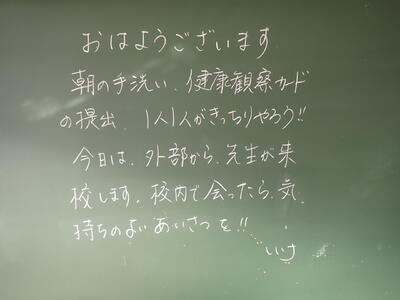 おはようございます
朝の手洗い、健康観察カード
の提出、1人1人がきっちりやろう!!
今日は、外部から、先生が来
校します。校内で会ったら、気
持ちのよいあいさつを!!